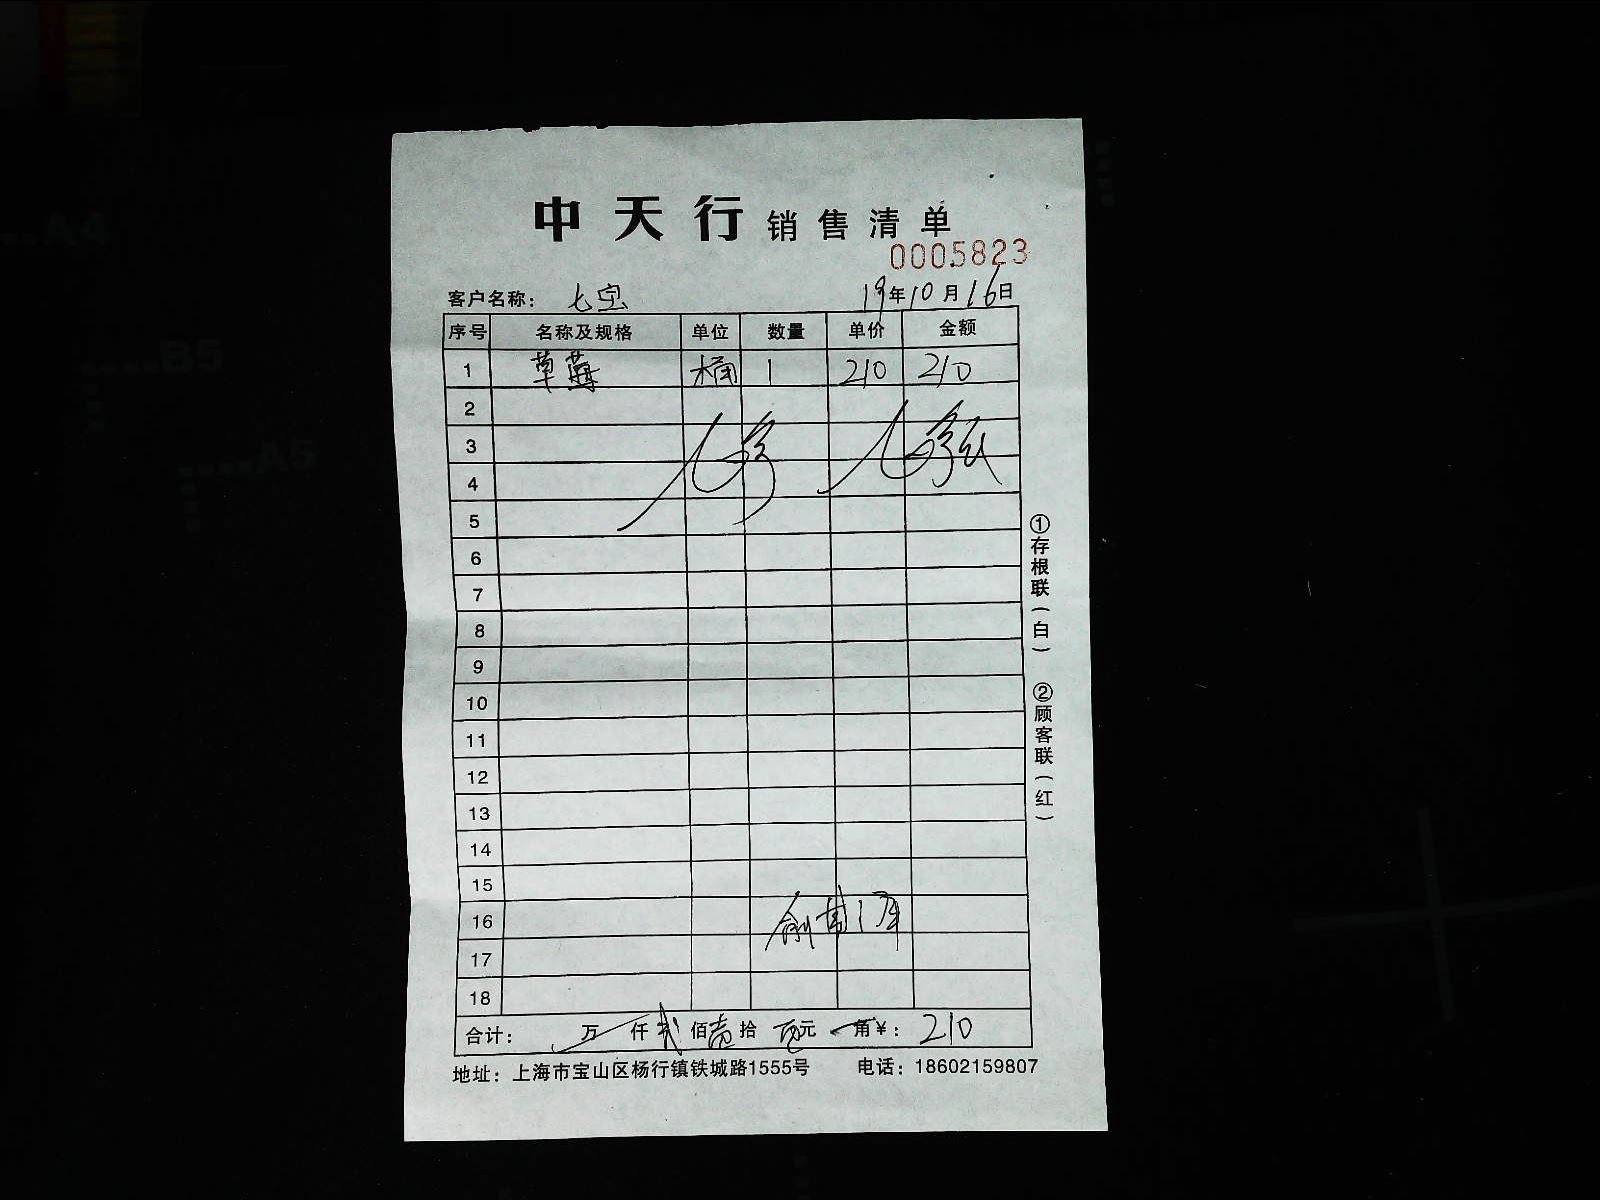 中天行 销售清单
0005823
客户名称： 七宝 19年10月16日
序号 名称及规格 单位 数量 单价 金额
1 草莓 桶 1 210 210
2
3
4
5
6
7
8
9
10
11
12
13
14
15
16
17
18
合计： 万 仟 贰 佰 壹 拾 元 角 ¥： 210
地址：上海市宝山区杨行镇铁城路1555号 电话：18602159807
①存根联（白）
②顾客联（红）
A4
B5
A5